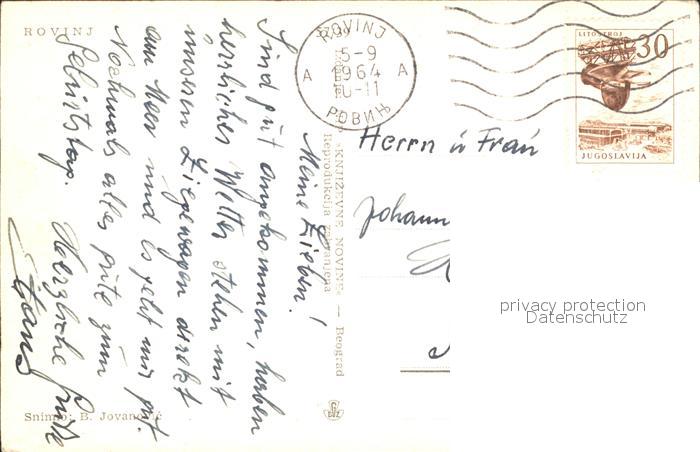 ROVINJ
Meine Lieben!
Sind gut angekommen, haben
herrliches Wetter stehen mit
unseren Liegewagen direkt
am Meer und es geht mir gut.
Nochmals alles gute zum
Geburtstag. Herzliche Grüße
Hans
Snimio: B. Jovanović
»KNJIŽEVNE NOVINE« — Beograd
Reprodukcija zabranjena
ROVINJ
5-9
A 1964 A
10-11
РОВИЊ
LITOSTROJ
30
JUGOSLAVIJA
Herrn u Frau
Johann
privacy protection
Datenschutz